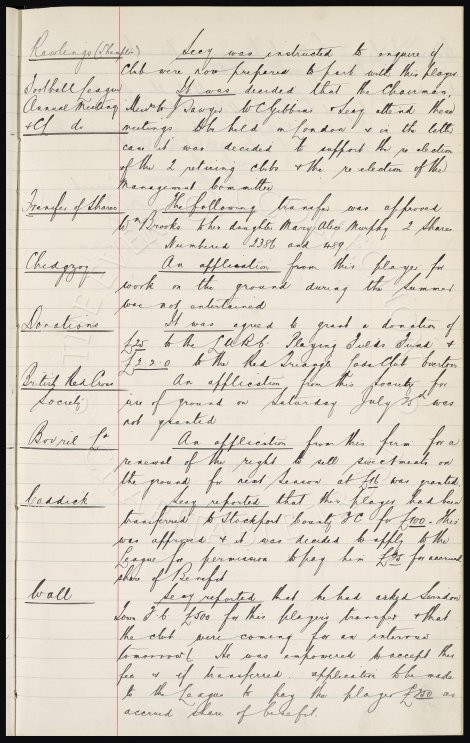 Rawlings (S'hampton) Secy was instructed to enquire if
Club were now prepared to part with this player
Football League It was decided that the Chairman,
Annual Meeting Messrs Sawyer W C Gibbins & Secy attend these
& Cf do meetings to be held in London & in the latter
case it was decided to support the re election
of the 2 retiring clubs & the re election of the
Management Committee
Transfer of Shares The following transfer was approved
Wm Brooks to her daughter Mary Alice Murphy 2 Shares
Numbered 2386 and 489.
Chedgzoy An application from this player for
work on the ground during the summer
was not entertained
Donations It was agreed to grant a donation of
£25 to the Playing Fields Fund &
£2.2.0 to the Red Triangle Club Everton
British Red Cross An application from this Society for
Society use of ground on Saturday July 25th was
not granted
Bovril Co An application from this firm for a
renewal of the right to sell sweetmeats on
the ground for next Season at was granted
Caddick Secy reported that this player had been
transferred to Stockport County F C for £100. This
was approved & it was decided to apply to the
League for permission to pay him for accrued
share of Benefit
Wall Secy reported that he had asked Swindon
Town F.C. £500 for this player's transfer & that
the club were coming for an interview
tomorrow. He was empowered to accept this
fee & if transferred application be made
to the League to pay the player £250 as
accrued share of benefit.